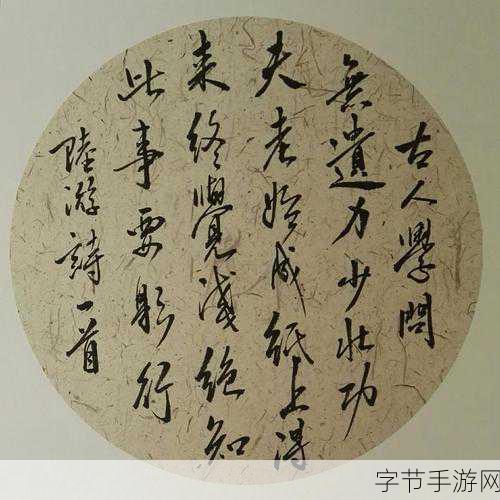 古人學問
無遺力少壯功
夫老始成紙上得
來終覺淺絕知
此事要躬行
陸游詩一首
字节手游网